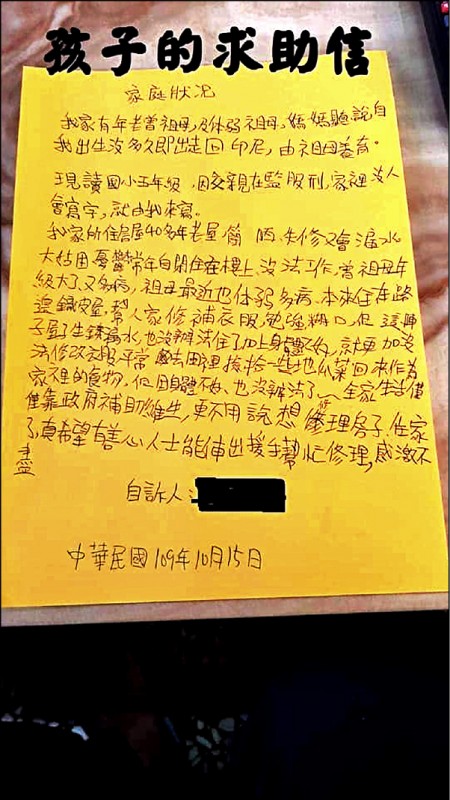 孩子的求助信
家庭狀況
我家有年老曾祖母,及体弱祖母,媽媽聽說自
我出生沒多久即出走回印尼,由祖母養育。
現讀國小五年級,因父親在監服刑,家裡沒人
會寫字,就由我來寫。
我家所住舊屋40多年老屋簡陋,失修又會漏水
大姑因憂鬱常年自閉住在樓上,沒法工作,曾祖母年
級大了又多病,祖母最近也体弱多病、本來住在路
邊鐵皮屋,幫人家修補衣服,勉強糊口,但這陣
子屋子生銹漏水,也沒辦法住了加上身體不好,就更加沒
法修改衣服平常去田裡撿拾一些地瓜葉回來作為
家裡的食物,但因身體不好、也沒辦法了、全家生活僅
僅靠政府補助維生,更不用說想修理房子,住家
了真希望有善心人士能伸出援手幫忙修理,感激不
盡
自訴人:
中華民國109年10月15日